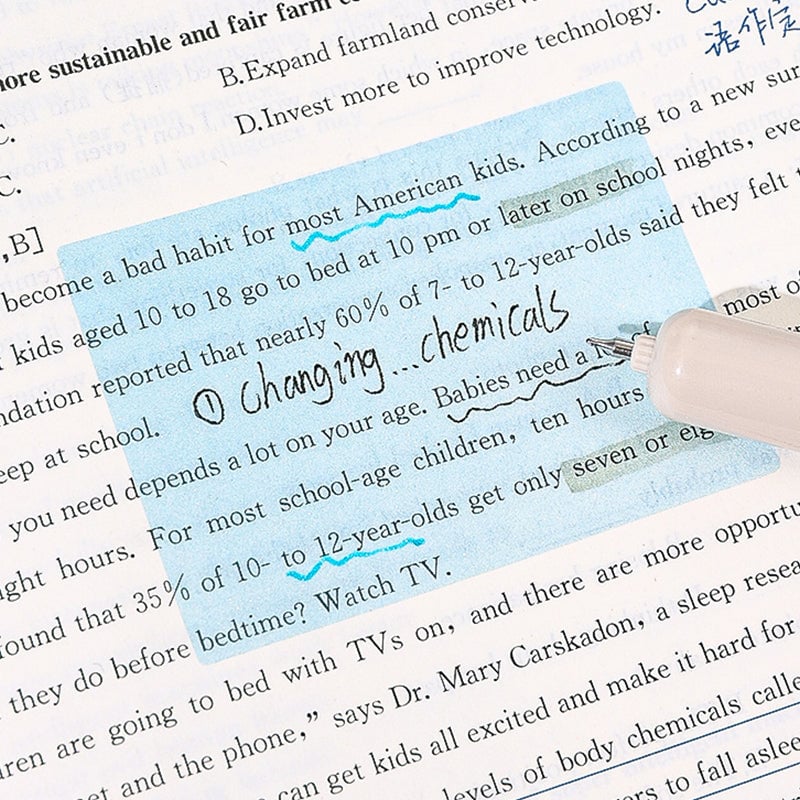 more sustainable and fair farm
B.Expand farmland
D.Invest more to improve technology.
语作
C.
C.
,B]
become a bad habit for most American kids. According to a new
kids aged 10 to 18 go to bed at 10 pm or later on school nights,
reported that nearly 60% of 7- to 12-year-olds said they felt
① changing...chemicals
at school.
you need depends a lot on your age. Babies need a most of
hours. For most school-age children, ten hours
found that 35% of 10- to 12-year-olds get only seven or
they do before bedtime? Watch TV.
are going to bed with TVs on, and there are more
and the phone,” says Dr. Mary Carskadon, a sleep
can get kids all excited and make it hard for
levels of body chemicals
to fall